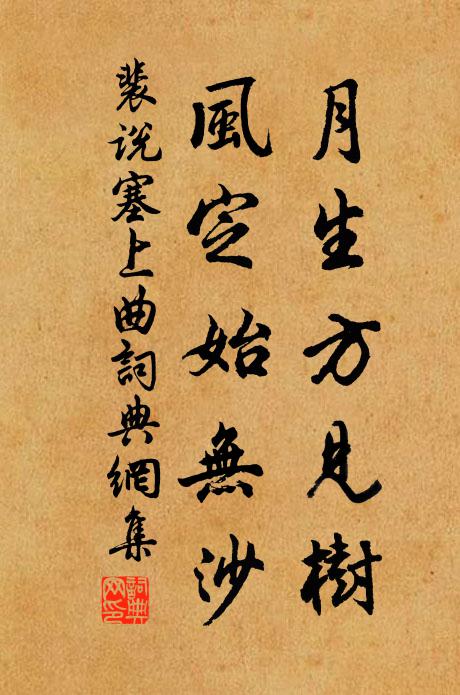 月生方見樹
風定始無沙
裴說塞上曲詞典網集
詞典
網印